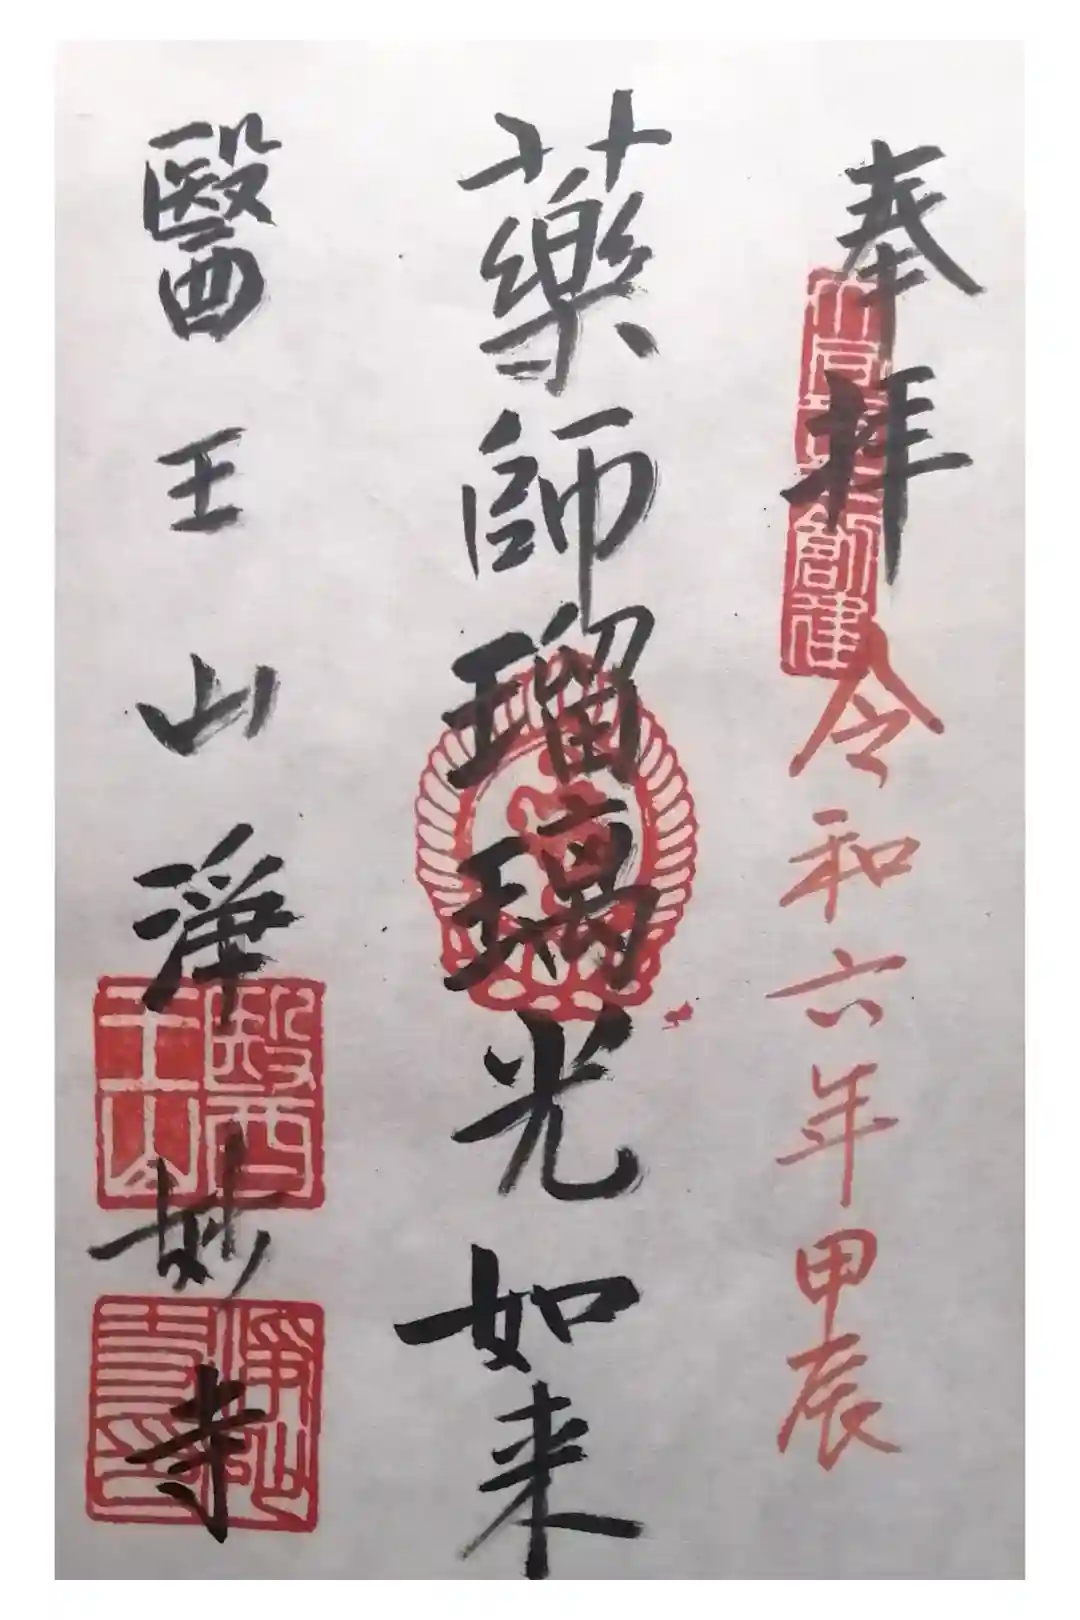 奉拝
令和六年甲辰
藥師瑠璃光如来
醫王山淨妙寺
醫王山
淨妙寺印